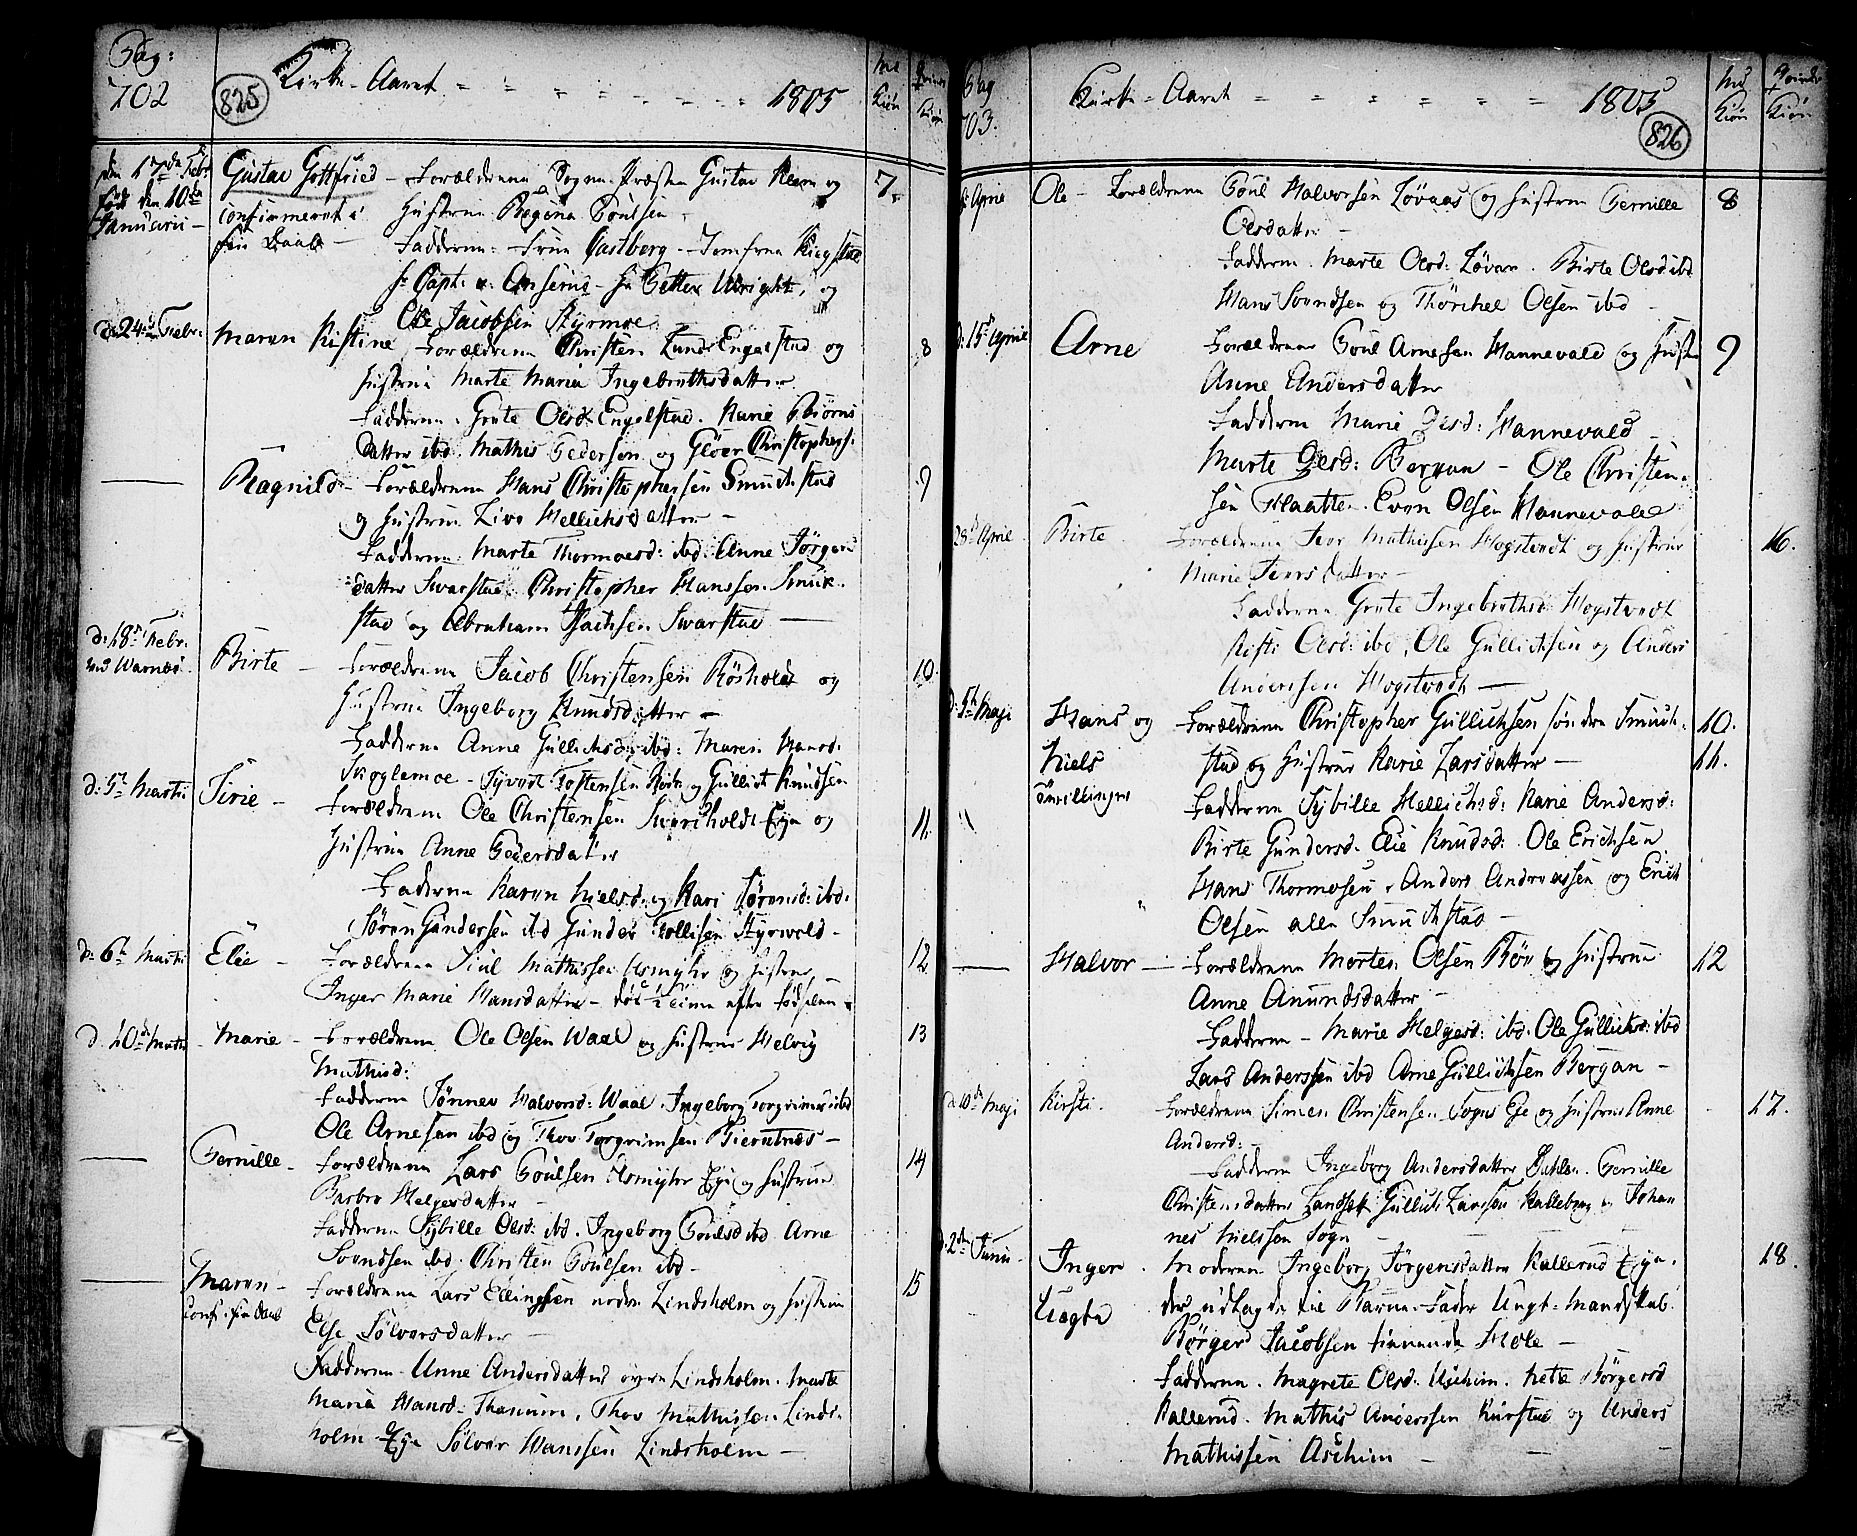 Pag:
702
825
Kirke-Aaret - - - - - - - 1805
Kiøn
Kiøn
den 17de Febr:
født den 10de
Januarii -
Gustav Gottfried - Forældrene Sogne-Præsten Gustav og 7
confirmeret i Hustrue Regina Poulsen
Fadderne: Frue Castberg - Jomfrue
Hr Capt: v: - Hr Petter og
Ole Jacobsen Styrmoe
d: 24de Febr:
Maren Kistine Forældrene Christen Lund Engelstad og 8
Hustrue Marte Maria Ingebrethsdatter
Fadderne. Grete Olsd: Engelstad. Karie Biørns
datter ibd. Mathis Pedersen og Gloer Christophers:
Ragnild - Forældrene Hans Christophersen Smuchstad 9
og Hustrue Live Hellichsdatter -
Fadderne. Marte Thormoesd: ibd: Anne Jørgens
datter Swarstad. Christopher Hanssen Smuk
stad og Abraham Isachsen Swarstad
d: 18de Febr.
ved Warnæs
Birte - Forældrene Jacob Christensen Røsholdt og 10
Hustrue Ingeborg Knudsdatter -
Fadderne Anne Gullichsd: ibd: Maren Hansd:
Skoglemoe - Syvert Tostensen og Gullich Knudsen
d: 5te Martii
Sirie - Forældrene Ole Christensen Swartholdt Eye og 11.
Hustrue Anne Pedersdatter
Fadderne Karen Nielsd: og Kari Sørensd: ibd:
Søren Gundersen ibd Gunder Tollefsen Styrvold -
d: 6te Martii
Elie - Forældrene Juul Mathissen Asmyhr og Hustrue 12
Inger Marie Hansdatter - død ½ Time efter Fødselen
d. 10de Martii - Marie - Forældrene Ole Olsen Waal og Hustrue Helvig 13
Mathisd:
Fadderne Tønnes Halvorsd: Waal. Ingeborg Torgrimsd ibd
Ole Arnesen ibd og Thov Torgrimsen Biernnæs -
Pernille - Forældrene Lars Poulsen Asmyhr Eye og Hustrue 14
Barbro Helgesdatter -
Fadderne Sybille Olsd: ibd. Ingeborg Poulsd ibd Arne
Svendsen ibd. Christen Poulsen ibd -
Maren - Forældrene Lars Ellingsen nedre Lindsholm og Hustrue 15
Else Sølversdatter -
Fadderne - Anne Andersdatter øvre Lindsholm. Marte
Maria Hansd: Thanum. Thov Mathissen Linds-
holm Eye Sølver Hanssen Lindsholm -
Pag
703.
Kirke-Aaret - - - - - - - 1805
826
Kiøn
Kiøn
April
Ole - Forældrene Poul Halvorsen Løvaas og Hustrue Pernille 8
Olsdatter -
Fadderne. Marte Olsd: Løvaas. Birte Olsd ibd
Hans Svendsen og Thorchel Olsen ibd -
d: 15de April
Arne Forældrene Poul Arnesen Hannevald og Hustrue 9
Anne Andersdatter
Fadderne Marie Olsd: Hannevald -
Marte Olsd: Bergan - Ole Christen-
sen Flaatten. Even Olsen Hannevald
28de April
Birte Forældrene Iver Mathissen Hogstvedt og Hustrue 16.
Marie Iversdatter -
Fadderne Grete Ingebrethsd Hogstvedt
Kisti Olsd: ibd. Ole Gullichsen og Anders
Anderssen Hogstvedt -
d: 5te Maji
Hans og Forældrene Christopher Gullichsen søndre Smuch- 10.
Niels stad og Hustrue Karie Larsdatter - 11.
Tvillinger Fadderne Sybille Hellichsd: Karie Andersd:
Birte Gundersd. Elie Knudsd: Ole Erichsen
Hans Thormosen. Anders Andreassen og Erich
Olsen alle Smuchstad -
Halvor - Forældrene Morten Olsen Bøe og Hustrue 12
Anne Anundsdatter -
Fadderne - Marie Helgesd: ibd. Ole Gullichs: ibd
Lars Anderssen ibd Arne Gullichsen Bergan -
d 10de Maji
Kirsti. Forældrene Simen Christensen Sogns Eye og Hustrue Anne 17.
Andersd: -
Fadderne Ingeborg Andersdatter Dahlen. Pernille
Christensdatter Gullich Larssen Kalleberg og Johan
nes Nielssen Sogn -
2den Junii -
Inger. Moderen Ingeborg Jørgensdatter Kallerud Eye. 18.
Uægte der udlagde til Barne-Fader Ungt-Mandskab
Børger Jacobsen tienende Hole -
Fadderne. Magrete Olsd: Aschim. Nette Børgersd
Kallerud. Mathis Anderssen Kirstad og Anders
Mathissen Aschim -